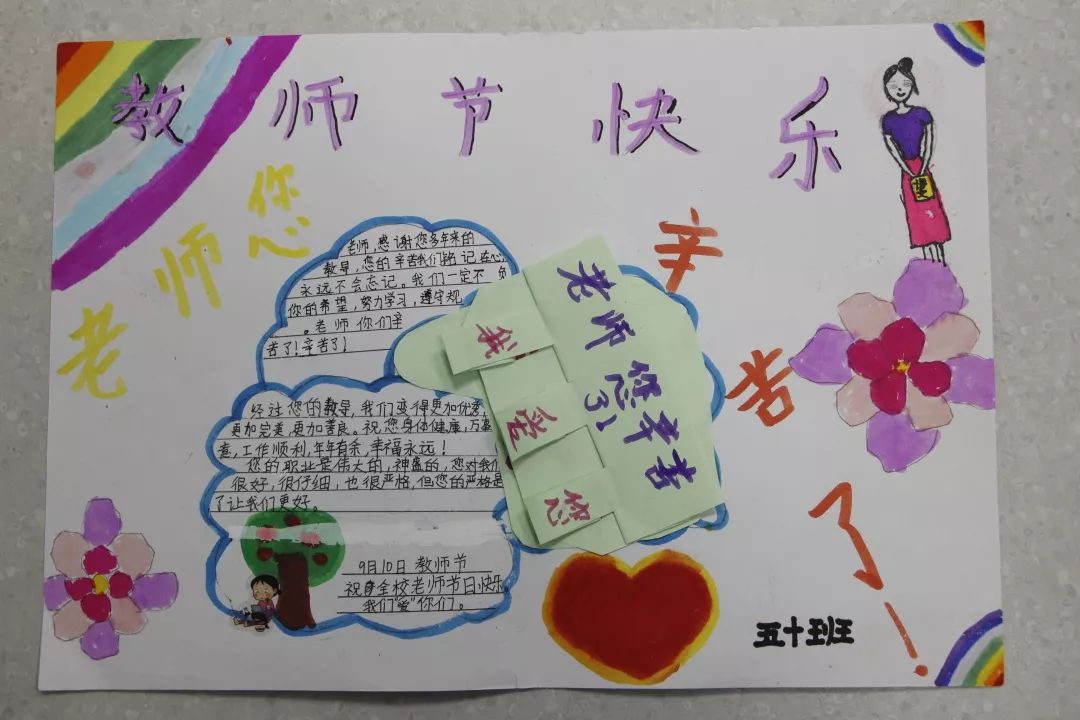 教师节快乐
老师您
辛苦了!
老师,感谢您多年来的
教导,您的辛苦我们铭记在心
永远不会忘记。我们一定不负
你的希望,努力学习,遵守规
。老师 你们辛
苦了!辛苦了!
老师您辛苦
了!
我
爱
您
经过您的教导,我们变得更加优秀,
更加完美,更加善良。祝您身体健康,万事
意,工作顺利,年年有余,幸福永远!
您的职业是伟大的,神圣的,您对我们
很好,很仔细,也很严格,但您的严格是
了让我们更好。
9月10日 教师节
祝全校老师节日快乐
我们"爱"你们。
五十班